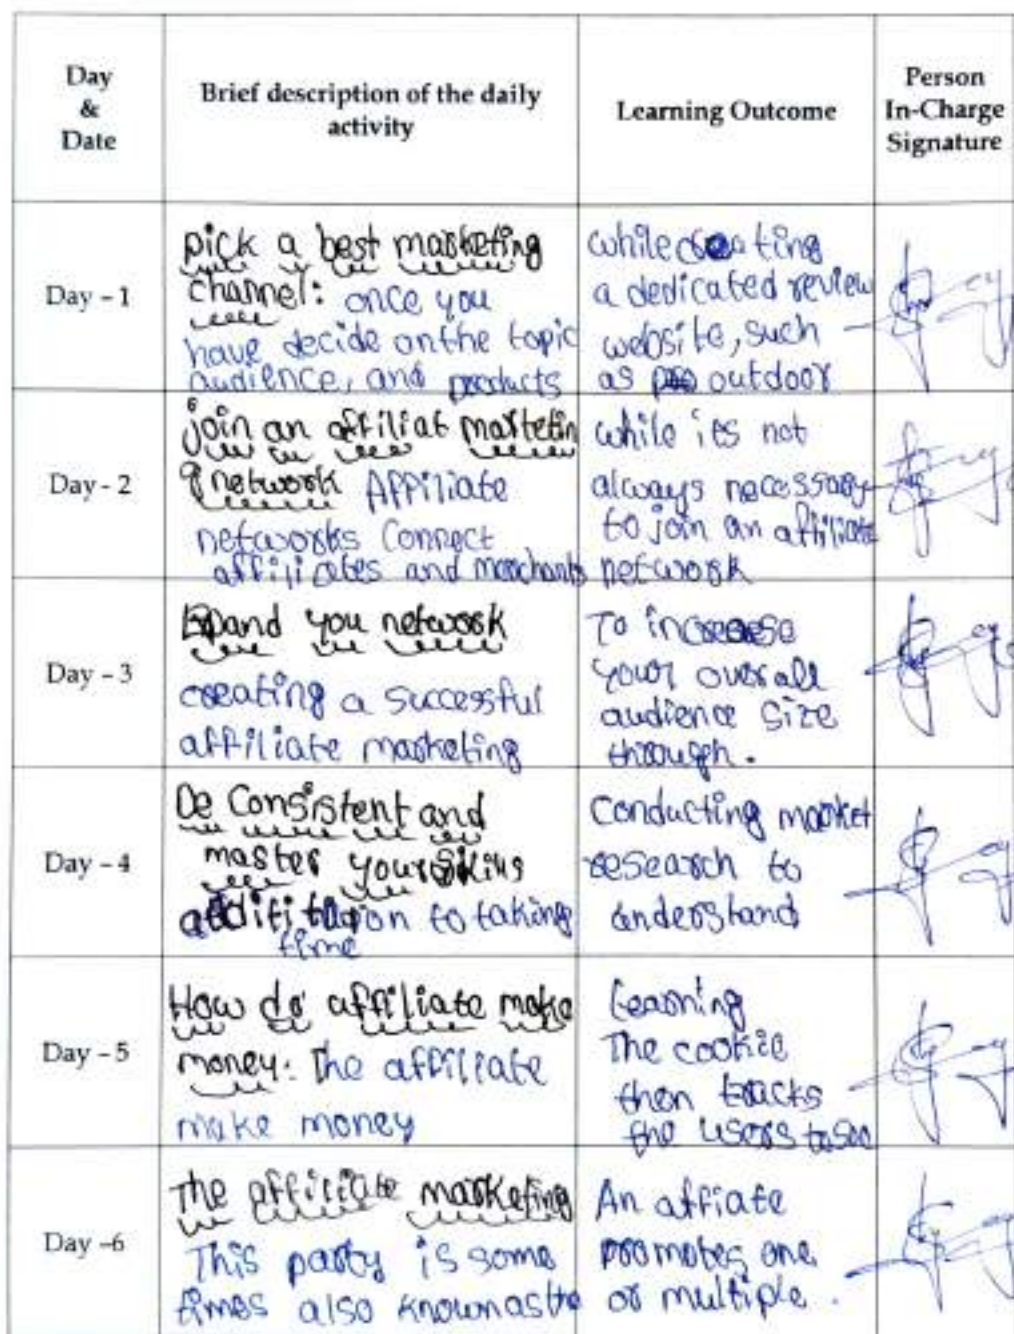 Day
&
Date
Brief description of the daily
activity
Learning Outcome
Person
In-Charge
Signature
Day - 1
pick a best marketing
channel: once you
have decide on the topic
audience, and products
while creating
a dedicated review
website, such
as outdoor
Day - 2
join an affiliat marketin
g network Affiliate
networks Connect
affiliates and merchants
while its not
always necessary
to join an affiliate
network
Day - 3
Expand you network
creating a successful
affiliate marketing
To increase
your overall
audience size
through.
Day - 4
Be Consistent and
master your skills
addition to taking
time
Conducting market
research to
understand
Day - 5
How do affiliate make
money: The affiliate
make money
Learning
The cookie
then tracks
the users to see
Day -6
The affiliate marketing
This party is some
times also known as the
An affiate
promotes one
or multiple.